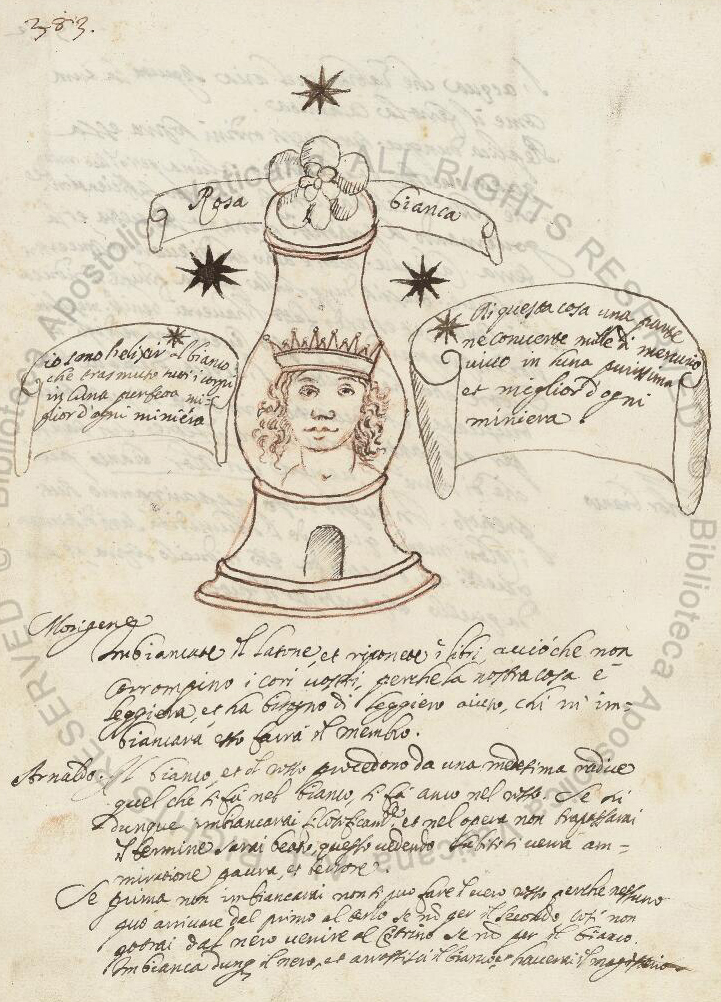 383.
Rosa bianca
io sono l'elixir al bianco
che trasmuto tutti i corpi
in luna perfetta mi-
glior d'ogni miniera
Di questa cosa una parte
ne converte mille di mercurio
vivo in luna purissima
et meglior d'ogni
miniera.
Morigene
Imbiancate il latone, et riponete i libri, acciò che non
corrompino i cori vostri, perche la nostra cosa è
leggiera, et ha bisogno di leggiero aiuto, chi m'im-
biancarà
Arnaldo. Il bianco, et il rosso procedono da una medesima radice
quel che si fà nel bianco, si fà anco nel rosso. Se
dunque imbiancarai et nel opera non trapassarai
il termine sarai beato, questo vedendo subito ti verrà am-
miratione paura, et terrore.
Se prima non imbiancarai non si può fare il vero rosso perche nessuno
può arrivare dal primo al terzo se nò per il secondo, così non
potrai dal nero venire al Citrino se nò per il bianco.
Imbianca dunq il nero, et il bianco et haverai il magisterio
© Biblioteca Apostolica Vaticana ALL RIGHTS RESERVED